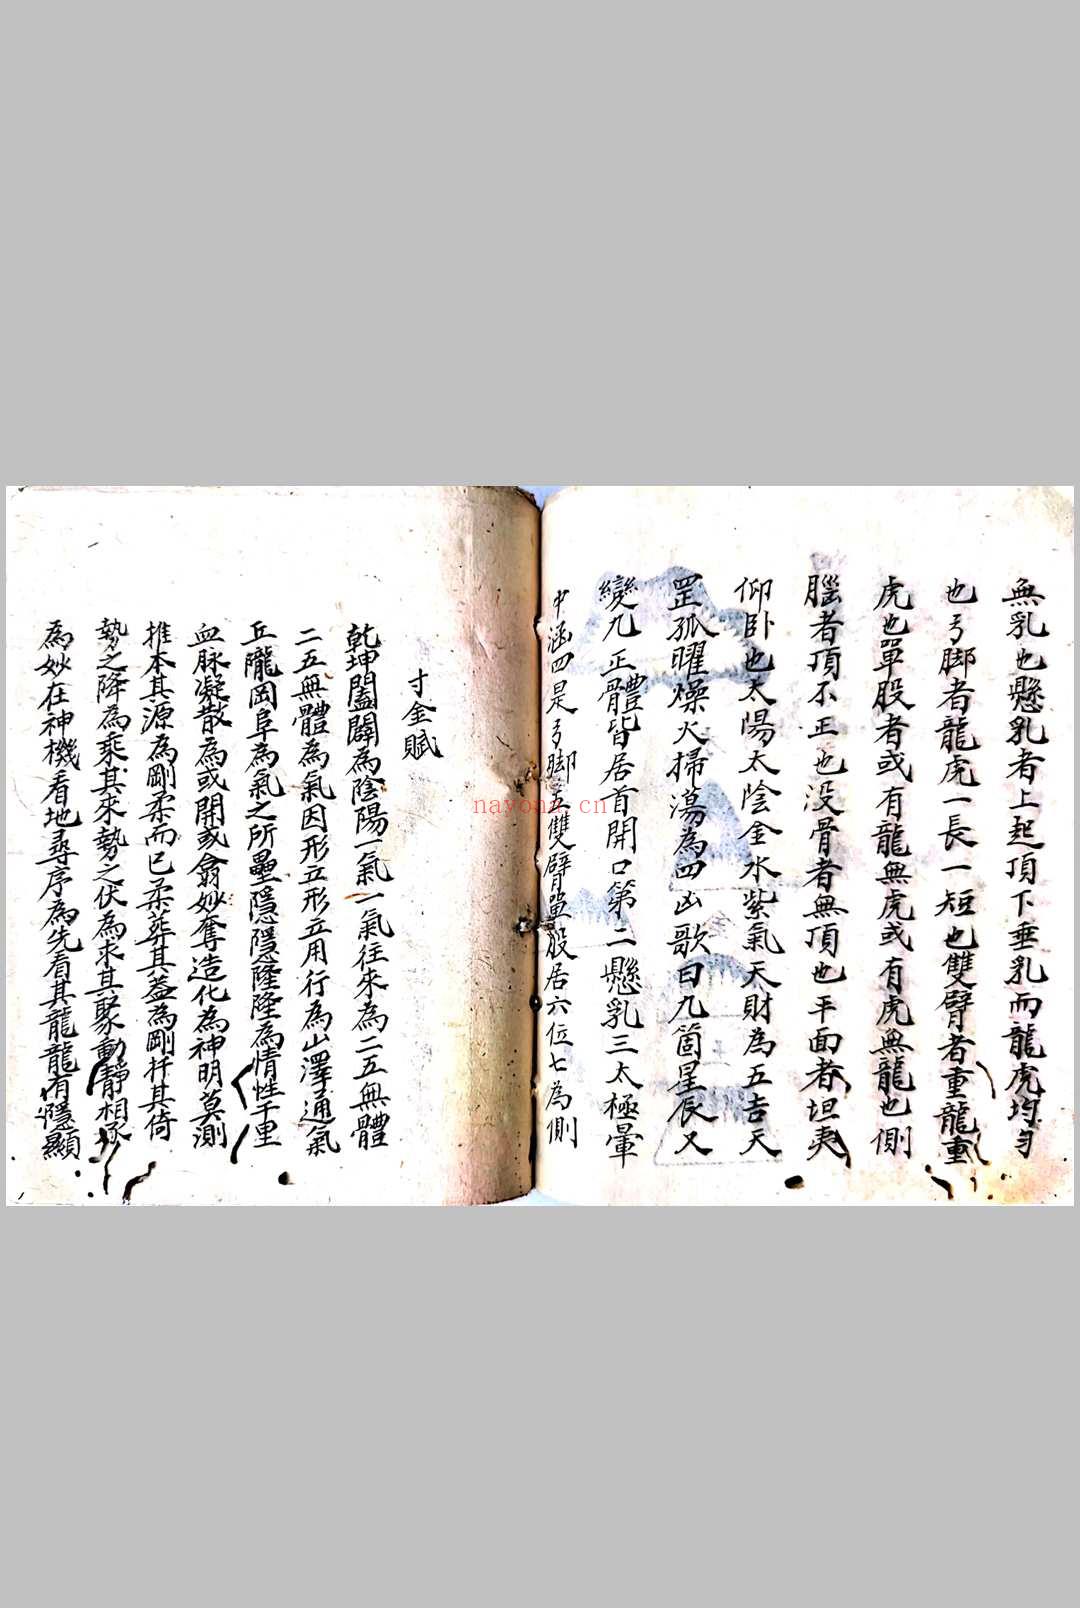 無乳也懸乳者上起頂下垂乳而龍虎均勻
也弓脚者龍虎一長一短也雙臂者重龍重
虎也單股者或有龍無虎或有虎無龍也側
腦者頂不正也没骨者無頂也平面者坦夷
仰卧也太陽太陰金水紫氣天財為五吉天
罡孤曜燥火掃蕩為四凶歌曰九箇星辰又
變九正體皆居首開口第二懸乳三太極暈
中涵四是弓脚五雙臂單股居六位七為側
寸金賦
乾坤闔闢為陰陽一氣一氣往來為二五無體
二五無體為氣因形五形立用行為山澤通氣
丘隴岡阜為氣之所壘隱隱隆隆為情性千里
血脉凝散為或開或翕妙奪造化為神明莫測
推本其源為剛柔而已柔葬其蓋為剛扦其倚
勢之降為乘其來勢之伏為求其聚動靜相
為妙在神機看地尋序為先看其龍龍有隱顯
nayona.cn